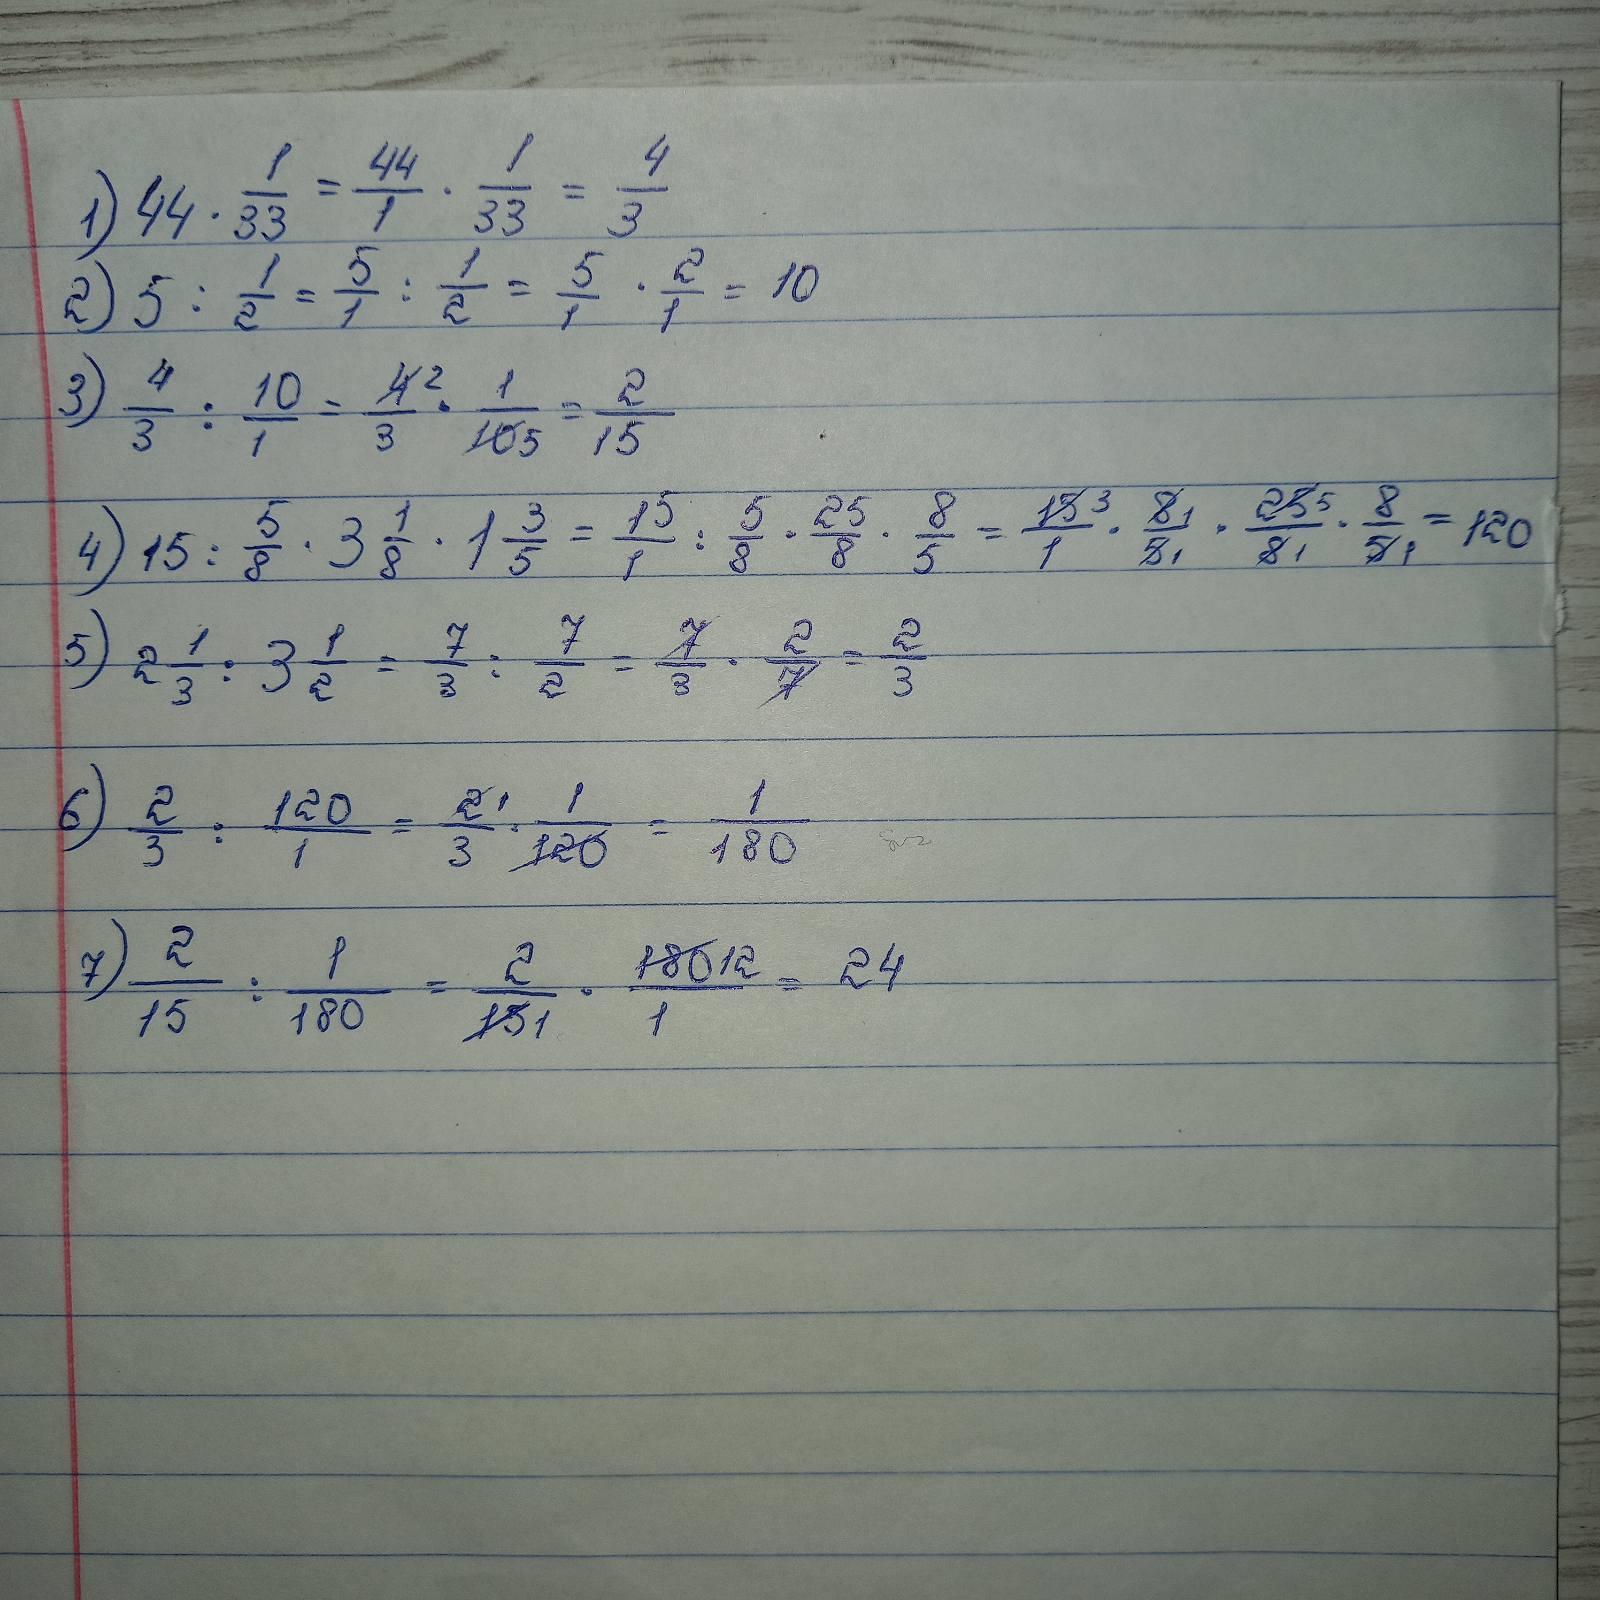 1) 44 · 1/33 = 44/1 · 1/33 = 4/3
2) 5 : 1/2 = 5/1 : 1/2 = 5/1 · 2/1 = 10
3) 4/3 : 10/1 = 4 2/3 · 1/10 5 = 2/15
4) 15 : 5/8 · 3 1/8 · 1 3/5 = 15/1 : 5/8 · 25/8 · 8/5 = 15 3/1 · 8 1/5 1 · 25 5/8 1 · 8/5 1 = 120
5) 2 1/3 : 3 1/2 = 7/3 : 7/2 = 7/3 · 2/7 = 2/3
6) 2/3 : 120/1 = 2 1/3 · 1/120 = 1/180
7) 2/15 : 1/180 = 2/15 1 · 180 12/1 = 24